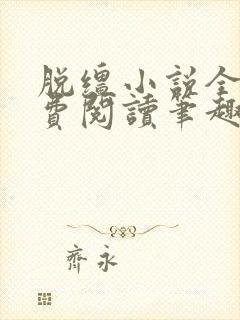 脱缰小说全
费阅讀笔趣
齐永